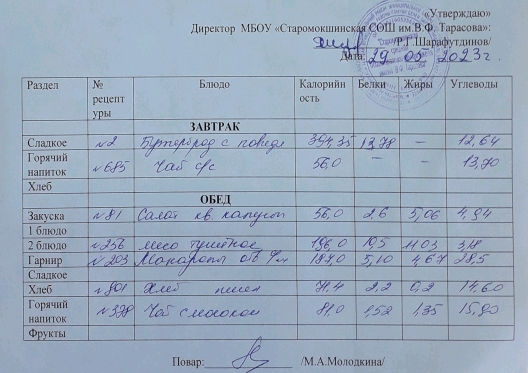 «Утверждаю»
Директор МБОУ «Старомокшинская СОШ им.В.Ф. Тарасова»:
/Р.Г.Шарафутдинов/
Дата: 29 05 2023г.
Раздел № рецептуры Блюдо Калорийность Белки Жиры Углеводы
ЗАВТРАК
Сладкое №2 Бутерброд с повидл 394,35 13,78 – 12,64
Горячий напиток №685 Чай с/с 56,0 – – 13,70
Хлеб
ОБЕД
Закуска №81 Салат кв. капусты 56,0 2,6 5,06 4,94
1 блюдо
2 блюдо №256 мясо тушёное 196,0 19,5 3,8
Гарнир №203 Макароны отв 187,0 5,10 4,67 28,5
Сладкое
Хлеб №801 Хлеб пшен 71,4 2,2 0,2 14,60
Горячий напиток Чай с молоком 81,0 1,52 1,35 15,90
Фрукты
Повар: /М.А.Молодкина/